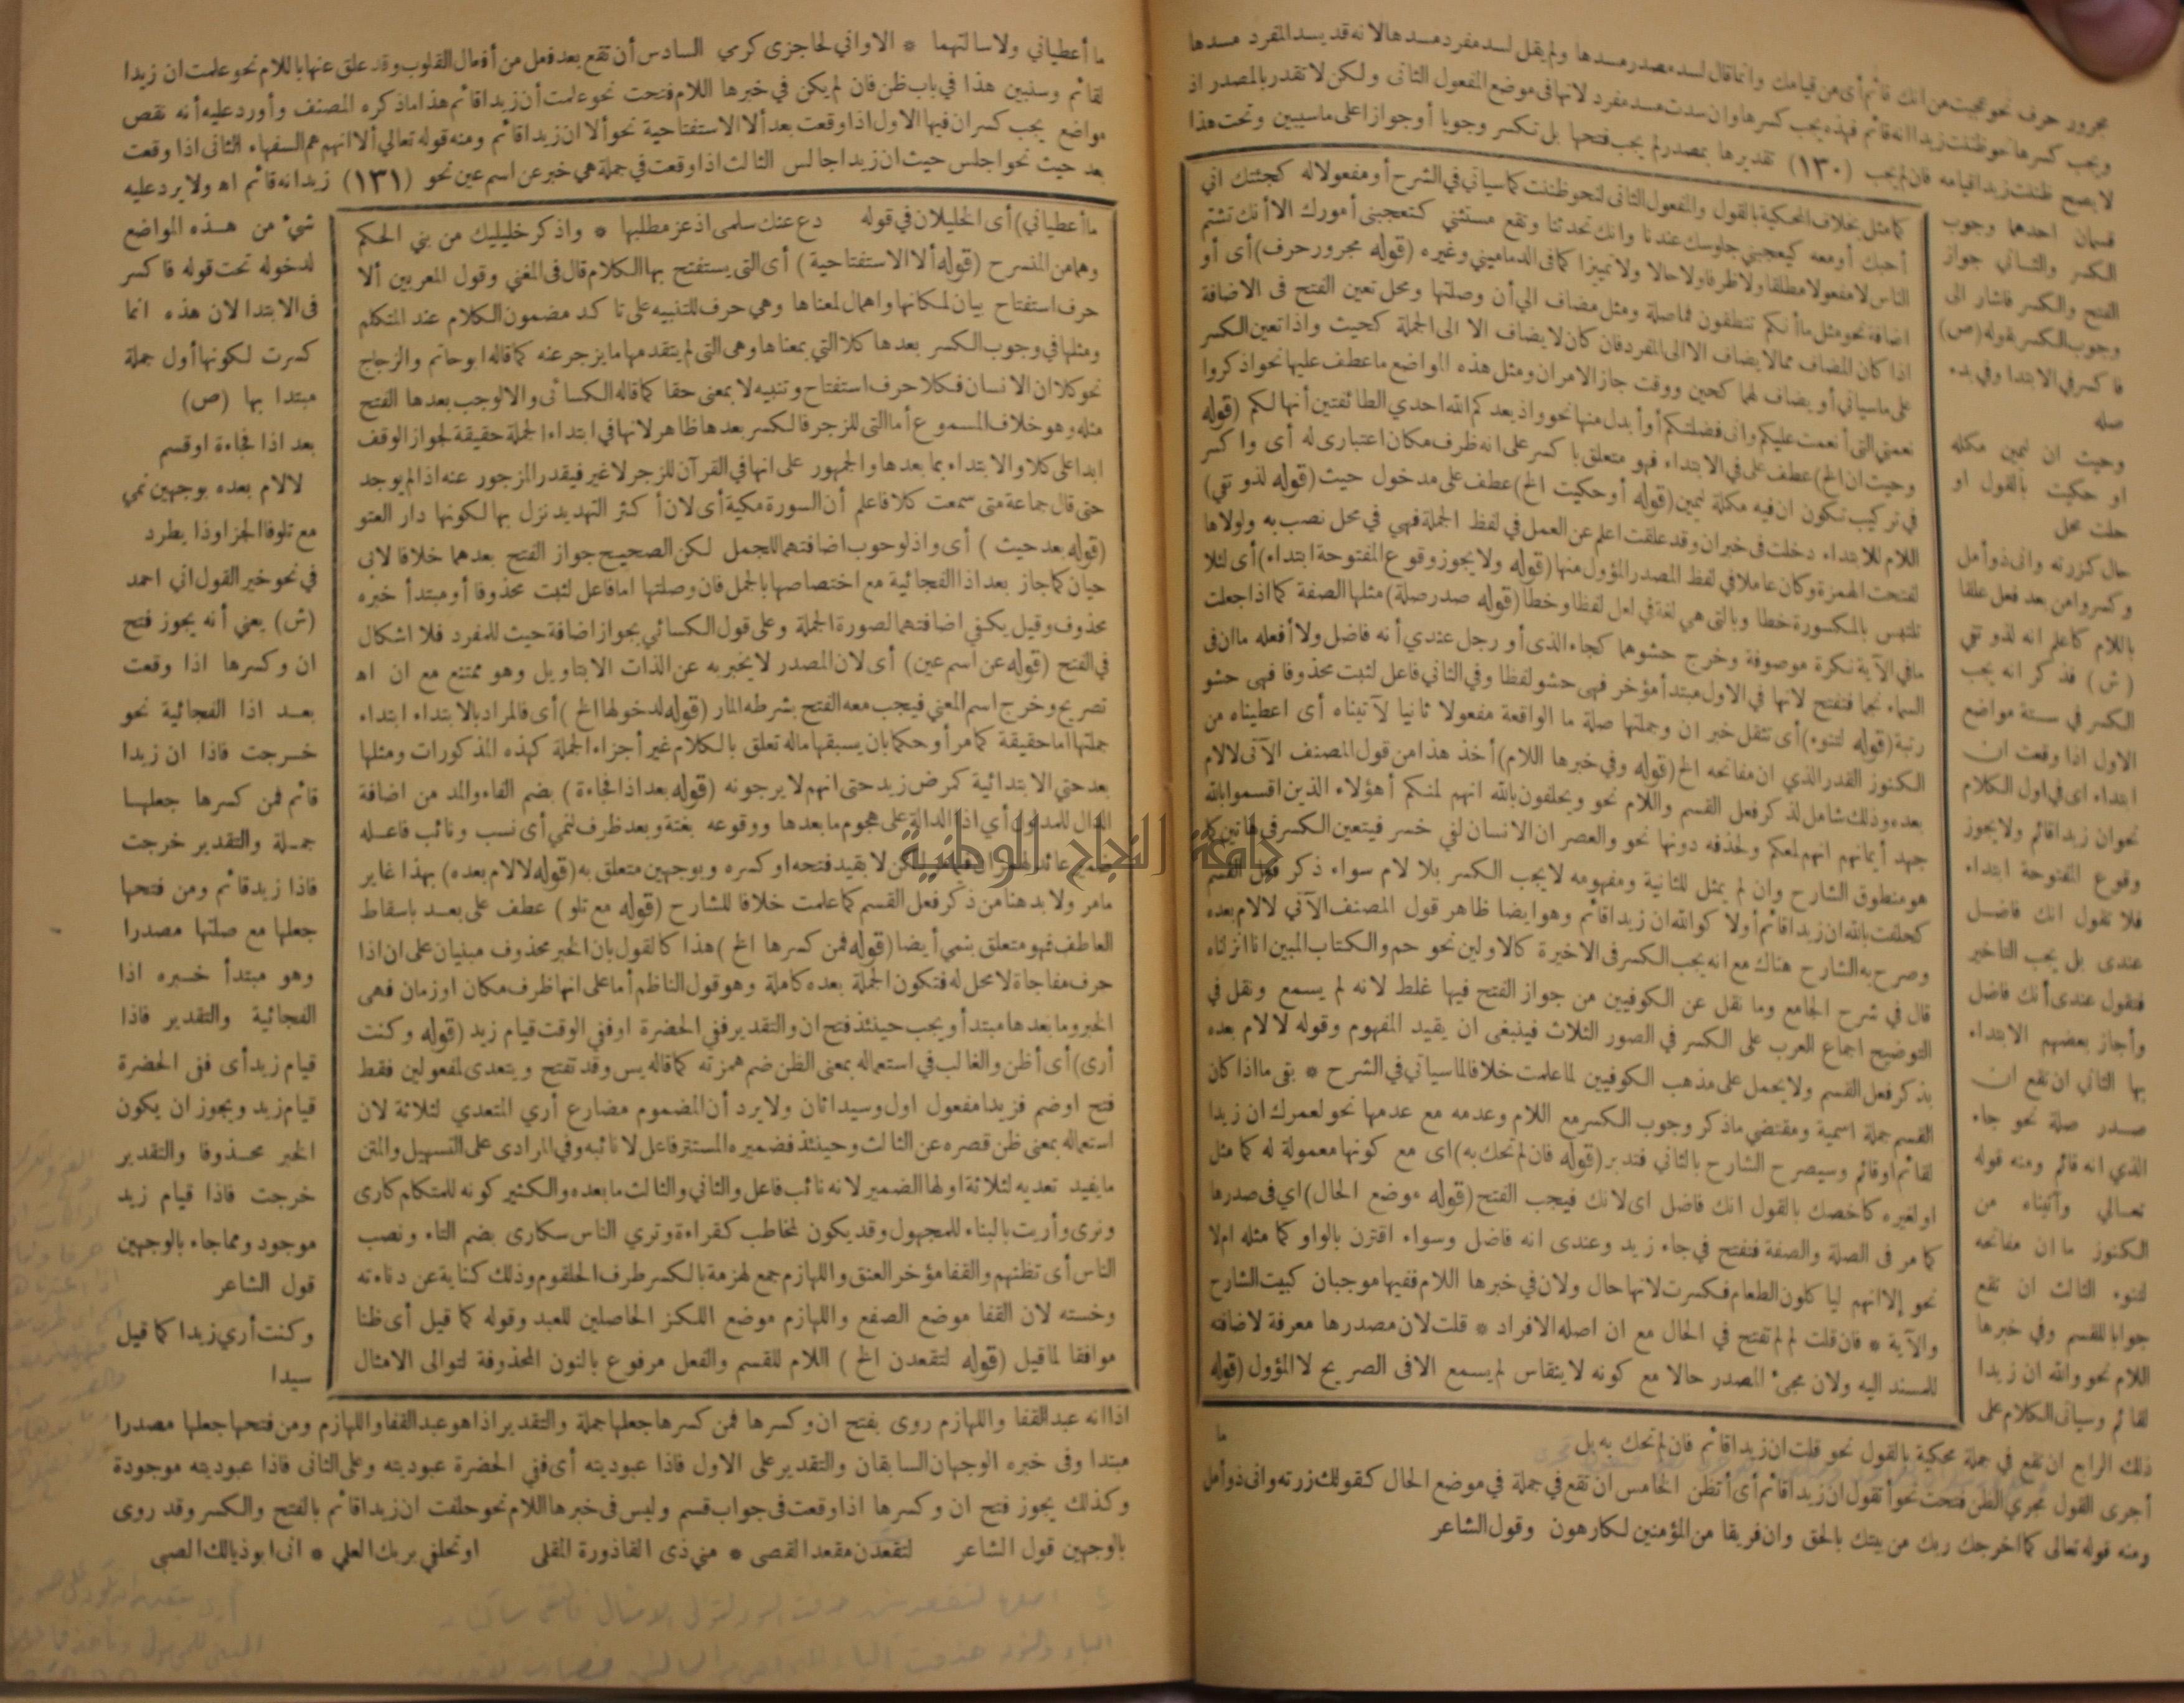 مجرور حرف نحو عجبت من انك قائم أى من قيامك وانما قال لسد مصدر مسدها ولم يقل لسد مفرد مسدها لانه قد يسد المفرد مسدها
ويجب كسرها نحو ظننت زيدا انه قائم فهذه يجب كسرها وان سدت مسد مفرد لانها فى موضع المفعول الثانى ولكن لا تقدر بالمصدر اذ
لا يصح ظننت زيدا قيامه فان لم يجب (١٣٠) تقديرها بمصدر لم يجب فتحها بل تكسر وجوبا أو جوازا على ما سيبين وتحت هذا
قسمان احدهما وجوب
الكسر والثانى جواز
الفتح والكسر فاشار الى
وجوب الكسر بقوله (ص)
فا كسر في الابتدا وفي بدء
صله
وحيث ان ليمين مكمله
او حكيت بالقول او
حلت محل
حال كزرته وانى ذو أمل
وكسروا من بعد فعل علقا
باللام كاعلم انه لذو تقي
(ش) فذكر انه يجب
الكسر في ستة مواضع
الاول اذا وقعت ان
ابتداء اى في اول الكلام
نحو ان زيدا قائم ولا يجوز
وقوع المفتوحة ابتداء
فلا تقول انك فاضل
عندى بل يجب التاخير
فتقول عندى أنك فاضل
وأجاز بعضهم الابتداء
بها الثاني ان تقع ان
صدر صلة نحو جاء
الذي انه قائم ومنه قوله
تعالي وآتيناه من
الكنوز ما ان مفاتحه
لتنوء الثالث ان تقع
جوابا للقسم وفي خبرها
اللام نحو والله ان زيدا
لقائم وسيأتى الكلام على
كما مثل بخلاف المحكية بالقول والمفعول الثانى لنحو ظننت كما سياتي في الشرح أو مفعولا له كجئتك اني
أحبك أو معه كيعجبني جلوسك عندنا وانك تحدثنا وتقع مستثني كتعجبنى أمورك الا أنك تشتم
الناس لا مفعولا مطلقا ولا ظرفا ولا حالا ولا تمييزا كما فى الدماميني وغيره (قوله مجرور حرف) أى أو
اضافة نحو مثل ما أنكم تنطقون فما صلة ومثل مضاف الي أن وصلتها ومحل تعين الفتح فى الاضافة
اذا كان المضاف مما لا يضاف الا الى المفرد فان كان لا يضاف الا الى الجملة كحيث واذا تعين الكسر
على ما سياتي أو يضاف لهما كحين ووقت جاز الامران ومثل هذه المواضع ما عطف عليها نحو اذكروا
نعمتي التى أنعمت عليكم وانى فضلتكم أو أبدل منها نحو واذ يعدكم الله احدي الطائفتين أنها لكم (قوله
وحيث ان الخ) عطف على في الابتداء فهو متعلق با كسر على انه ظرف مكان اعتبارى له أى وا كسر
في تركيب تكون ان فيه مكملة ليمين (قوله أو حكيت الخ) عطف على مدخول حيث (قوله لذو تقي)
اللام للابتداء دخلت فى خبر ان وقد علقت اعلم عن العمل في لفظ الجملة فهي في محل نصب به ولولاها
لفتحت الهمزة وكان عاملا في لفظ المصدر المؤول منها (قوله ولا يجوز وقوع المفتوحة ابتداء) أى لئلا
تلتبس بالمكسورة خطا وبالتى هي لغة في لعل لفظا وخطا (قوله صدر صلة) مثلها الصفة كما اذا جعلت
ما في الآية نكرة موصوفة وخرج حشوهما كجاء الذى أو رجل عندي أنه فاضل ولا أفعله ما ان فى
السماء نجما فتفتح لانها في الاول مبتدأ مؤخر فهى حشو لفظا وفي الثاني فاعل لثبت محذوفا فهى حشو
رتبة (قوله لتنوء) أى تثقل خبر ان وجملتها صلة ما الواقعة مفعولا ثانيا لآتيناه أى اعطيناه من
الكنوز القدر الذي ان مفاتحه الخ (قوله وفي خبرها اللام) أخذ هذا من قول المصنف الآتى لا لام
بعده وذلك شامل لذكر فعل القسم واللام نحو ويحلفون بالله انهم لمنكم أهؤلاء الذين اقسموا بالله
جهد أيمانهم انهم لمعكم ولحذفه دونها نحو والعصر ان الانسان لفي خسر فيتعين الكسر في هاتين كما
هو منطوق الشارح وان لم يمثل للثانية ومفهومه لا يجب الكسر بلا لام سواء ذكر فعل القسم
كحلفت بالله ان زيدا قائم أولا كوالله ان زيدا قائم وهو ايضا ظاهر قول المصنف الآتي لا لام بعده
وصرح به الشارح هناك مع انه يجب الكسر فى الاخيرة كالاولين نحو حم والكتاب المبين انا انزلناه
قال في شرح الجامع وما نقل عن الكوفيين من جواز الفتح فيها غلط لانه لم يسمع ونقل في
التوضيح اجماع العرب على الكسر في الصور الثلاث فينبغى ان يقيد المفهوم وقوله لا لام بعده
بذكر فعل القسم ولا يحمل على مذهب الكوفيين لما علمت خلافا لما سياتي في الشرح * بقى ما اذا كان
القسم جملة اسمية ومقتضي ما ذكر وجوب الكسر مع اللام وعدمه مع عدمها نحو لعمرك ان زيدا
لقائم او قائم وسيصرح الشارح بالثاني فتدبر (قوله فان لم تحك به) اى مع كونها معمولة له كما مثل
او لغيره كاخصك بالقول انك فاضل اى لانك فيجب الفتح (قوله موضع الحال) اي فى صدرها
كما مر فى الصلة والصفة فتفتح في جاء زيد وعندى انه فاضل وسواء اقترن بالواو كما مثله ام لا
نحو إلا انهم ليا كلون الطعام فكسرت لانها حال ولان في خبرها اللام ففيها موجبان كبيت الشارح
والآية * فان قلت لم لم تفتح في الحال مع ان اصله الافراد * قلت لان مصدرها معرفة لاضافته
للمسند اليه ولان مجئ المصدر حالا مع كونه لا ينقاس لم يسمع الا فى الصريح لا المؤول (قوله
ما
ذلك الرابع ان تقع في جملة محكية بالقول نحو قلت ان زيدا قائم فان لم تحك به بل
أجرى القول مجري الظن فتحت نحو أتقول ان زيدا قائم أى أتظن الخامس ان تقع في جملة في موضع الحال كقولك زرته وانى ذو أمل
ومنه قوله تعالى كما اخرجك ربك من بيتك بالحق وان فريقا من المؤمنين لكارهون وقول الشاعر
ما أعطياني ولا سالتهما * الا واني لحاجزى كرمي السادس أن تقع بعد فعل من أفعال القلوب وقد علق عنها باللام نحو علمت ان زيدا
لقائم وسنبين هذا في باب ظن فان لم يكن في خبرها اللام فتحت نحو علمت أن زيدا قائم هذا ما ذكره المصنف وأورد عليه أنه نقص
مواضع يجب كسر ان فيها الاول اذا وقعت بعد ألا الاستفتاحية نحو ألا ان زيدا قائم ومنه قوله تعالي ألا انهم هم السفهاء الثانى اذا وقعت
بعد حيث نحو اجلس حيث ان زيدا جالس الثالث اذا وقعت في جملة هي خبر عن اسم عين نحو (١٣١) زيد انه قائم اه ولا يرد عليه
شئ من هذه المواضع
لدخوله تحت قوله فا كسر
فى الابتدا لان هذه انما
كسرت لكونها أول جملة
مبتدا بها (ص)
بعد اذا فجاءة او قسم
لا لام بعده بوجهين نمي
مع تلو فا الجزا وذا يطرد
في نحو خير القول اني احمد
(ش) يعني أنه يجوز فتح
ان وكسرها اذا وقعت
بعد اذا الفجائية نحو
خرجت فاذا ان زيدا
قائم فمن كسرها جعلها
جملة والتقدير خرجت
فاذا زيد قائم ومن فتحها
جعلها مع صلتها مصدرا
وهو مبتدأ خبره اذا
الفجائية والتقدير فاذا
قيام زيد أى ففى الحضرة
قيام زيد ويجوز ان يكون
الخبر محذوفا والتقدير
خرجت فاذا قيام زيد
موجود ومما جاء بالوجهين
قول الشاعر
وكنت أري زيدا كما قيل
سيدا
ما أعطياني) أى الخليلان في قوله دع عنك سلمى اذ عز مطلبها * واذكر خليليك من بني الحكم
وهما من المنسرح (قوله ألا الاستفتاحية) أى التى يستفتح بها الكلام قال فى المغني وقول المعربين ألا
حرف استفتاح بيان لمكانها واهمال لمعناها وهي حرف للتنبيه على تا كد مضمون الكلام عند المتكلم
ومثلها في وجوب الكسر بعدها كلا التي بمعناها وهى التى لم يتقدمها ما يزجر عنه كما قاله ابو حاتم والزجاج
نحو كلا ان الانسان فكلا حرف استفتاح وتنبيه لا بمعنى حقا كما قاله الكسائى والا لوجب بعدها الفتح
مثله وهو خلاف المسموع أما التى للزجر فالكسر بعدها ظاهر لانها في ابتداء الجملة حقيقة لجواز الوقف
ابدا على كلا والابتداء بما بعدها والجمهور على انها في القرآن للزجر لا غير فيقدر المزجور عنه اذا لم يوجد
حتى قال جماعة متى سمعت كلا فاعلم أن السورة مكية أى لان أكثر التهديد نزل بها لكونها دار العتو
(قوله بعد حيث) أى واذ لوجوب اضافتهما للجمل لكن الصحيح جواز الفتح بعدهما خلافا لابى
حيان كما جاز بعد اذا الفجائية مع اختصاصها بالجمل فان وصلتها اما فاعل لثبت محذوفا أو مبتدأ خبره
محذوف وقيل يكفي اضافتهما لصورة الجملة وعلى قول الكسائي بجواز اضافة حيث للمفرد فلا اشكال
في الفتح (قوله عن اسم عين) أى لان المصدر لا يخبر به عن الذات الا بتاويل وهو ممتنع مع ان اه
تصريح وخرج اسم المعني فيجب معه الفتح بشرطه المار (قوله لدخولها الخ) أى فالمراد بالابتداء ابتداء
جملتها اما حقيقة كما مر أو حكما بان يسبقها ماله تعلق بالكلام غير أجزاء الجملة كهذه المذكورات ومثلها
بعد حتي الابتدائية كمرض زيد حتى انهم لا يرجونه (قوله بعد اذا فجاءة) بضم الفاء والمد من اضافة
الدال للمدلول أي اذا الدالة على هجوم ما بعدها ووقوعه بغتة وبعد ظرف لنمي أى نسب ونائب فاعله
لكن لا بقيد فتحه او كسره وبوجهين متعلق به (قوله لا لام بعده) بهذا غاير
ما مر ولا بد هنا من ذكر فعل القسم كما علمت خلافا للشارح (قوله مع تلو) عطف على بعد باسقاط
العاطف فهو متعلق بنمي أيضا (قوله فمن كسرها الخ) هذا كالقول بان الخبر محذوف مبنيان على ان اذا
حرف مفاجاة لا محل له فتكون الجملة بعده كاملة وهو قول الناظم أما على انها ظرف مكان او زمان فهى
الخبر وما بعدها مبتدأ ويجب حينئذ فتح ان والتقدير ففي الحضرة او ففي الوقت قيام زيد (قوله وكنت
أرى) أى أظن والغالب في استعماله بمعنى الظن ضم همزته كما قاله يس وقد تفتح ويتعدى لمفعولين فقط
فتح او ضم فزيدا مفعول اول وسيدا ثان ولا يرد أن المضموم مضارع أري المتعدي لثلاثة لان
استعماله بمعنى ظن قصره عن الثالث وحينئذ فضميره المستتر فاعل لا نائبه وفي المرادى على التسهيل والمتن
ما يفيد تعديه لثلاثة اولها الضمير لانه نائب فاعل والثاني والثالث ما بعده والكثير كونه للمتكلم كارى
ونرى وأريت بالبناء للمجهول وقد يكون لمخاطب كقراءة وتري الناس سكارى بضم التاء ونصب
الناس أى تظنهم والقفا مؤخر العنق واللهازم جمع لهزمة بالكسر طرف الحلقوم وذلك كناية عن دناءته
وخسته لان القفا موضع الصفع واللهازم موضع اللكز الحاصلين للعبد وقوله كما قيل أى ظنا
موافقا لما قيل (قوله لتقعدن الخ) اللام للقسم والفعل مرفوع بالنون المحذوفة لتوالى الامثال
اذا انه عبد القفا واللهازم روى بفتح ان وكسرها فمن كسرها جعلها جملة والتقدير اذا هو عبد القفا واللهازم ومن فتحها جعلها مصدرا
مبتدا وفى خبره الوجهان السابقان والتقدير على الاول فاذا عبوديته أى ففي الحضرة عبوديته وعلى الثانى فاذا عبوديته موجودة
وكذلك يجوز فتح ان وكسرها اذا وقعت فى جواب قسم وليس فى خبرها اللام نحو حلفت ان زيدا قائم بالفتح والكسر وقد روى
بالوجهين قول الشاعر لتقعدن مقعد القصى * مني ذى القاذورة المقلى او تحلفي بربك العلي * انى ابو ذيالك الصبى
جامعة النجاح الوطنية